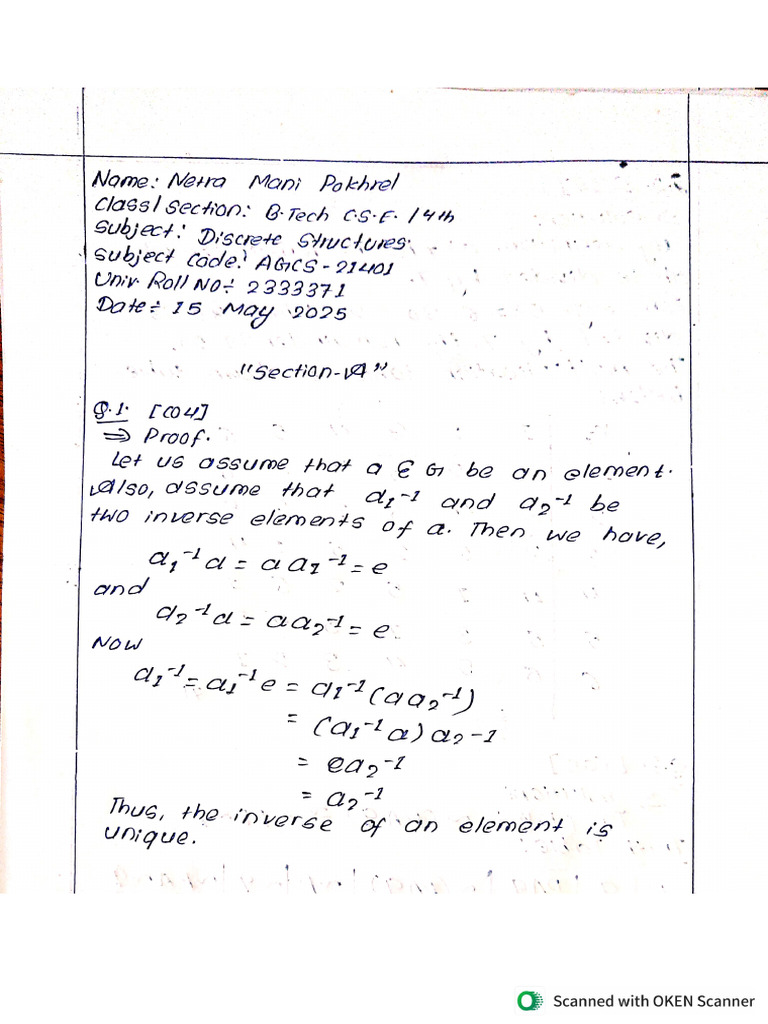 Name: Netra Mani Pokhrel
Class/Section: B.Tech C.S.E. / 4th
Subject: Discrete Structures.
Subject Code: AGCS-21401
Univ. Roll No:- 2333371
Date:- 15 May 2025
"Section-A"
Q.1. [CO4]
⇒ Proof.
Let us assume that a ∈ G be an element.
Also, assume that a₁⁻¹ and a₂⁻¹ be
two inverse elements of a. Then we have,
a₁⁻¹a = aa₁⁻¹ = e
and
a₂⁻¹a = aa₂⁻¹ = e
Now
a₁⁻¹ = a₁⁻¹e = a₁⁻¹(aa₂⁻¹)
= (a₁⁻¹a)a₂-1
= ea₂⁻¹
= a₂⁻¹
Thus, the inverse of an element is
unique.
Scanned with OKEN Scanner